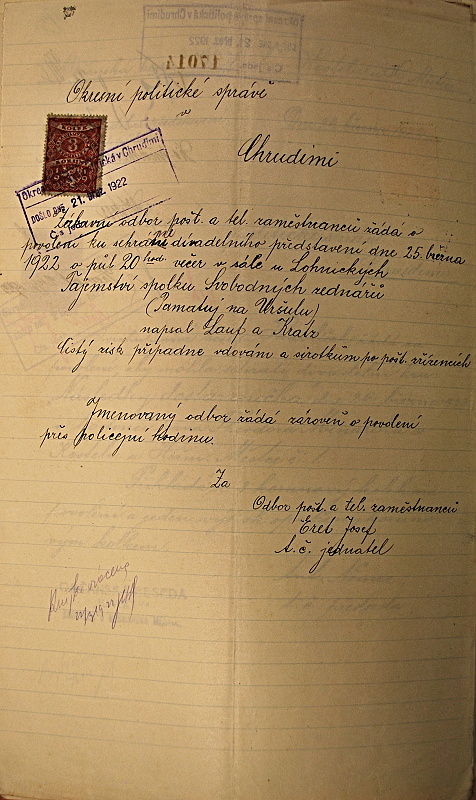 17014
Okresní politické správě
v
Chrudimi
KOLEK
3
Okres politická v Chrudimi
DOŠLO DNE 21. BŘEZ. 1922
Zábavní odbor pošt. a tel. zaměstnanců žádá o
povolení ku sehrání divadelního představení dne 25. března
1922 o půl 20 hod. večer v sále u Lohnických
Tajemství spolku Svobodných zednářů
(Pamatuj na Uršulu)
napsal Lauf a Kratz
Čistý zisk případne vdovám a sirotkům po pošt. zřízencích
Jmenovaný odbor žádá zároveň o povolení
přes policejní hodinu.
Za
Odbor pošt. a tel. zaměstnanců
Eret Josef
t. č. jednatel